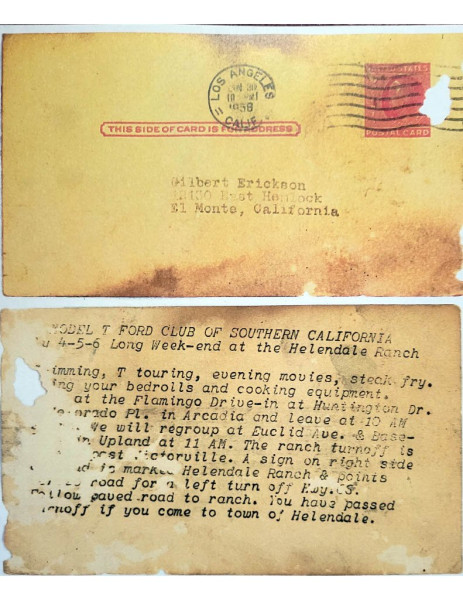 LOS ANGELES
1958
CALIF.
POSTAL CARD
THIS SIDE OF CARD IS FOR ADDRESS
Gilbert Erickson
East Hemlock
El Monte, California
MODEL T FORD CLUB OF SOUTHERN CALIFORNIA
4-5-6 Long Week-end at the Helendale Ranch
imming, T touring, evening movies, steak fry.
ing your bedrolls and cooking equipment.
at the Flamingo Drive-in at Huntington Dr.
orado Pl. in Arcadia and leave at 10 AM
We will regroup at Euclid Ave. & Base-
in Upland at 11 AM. The ranch turnoff is
past Victorville. A sign on right side
is marked Helendale Ranch & points
road for a left turn off Hwy.
paved road to ranch. You have passed
rnoff if you come to town of Helendale.